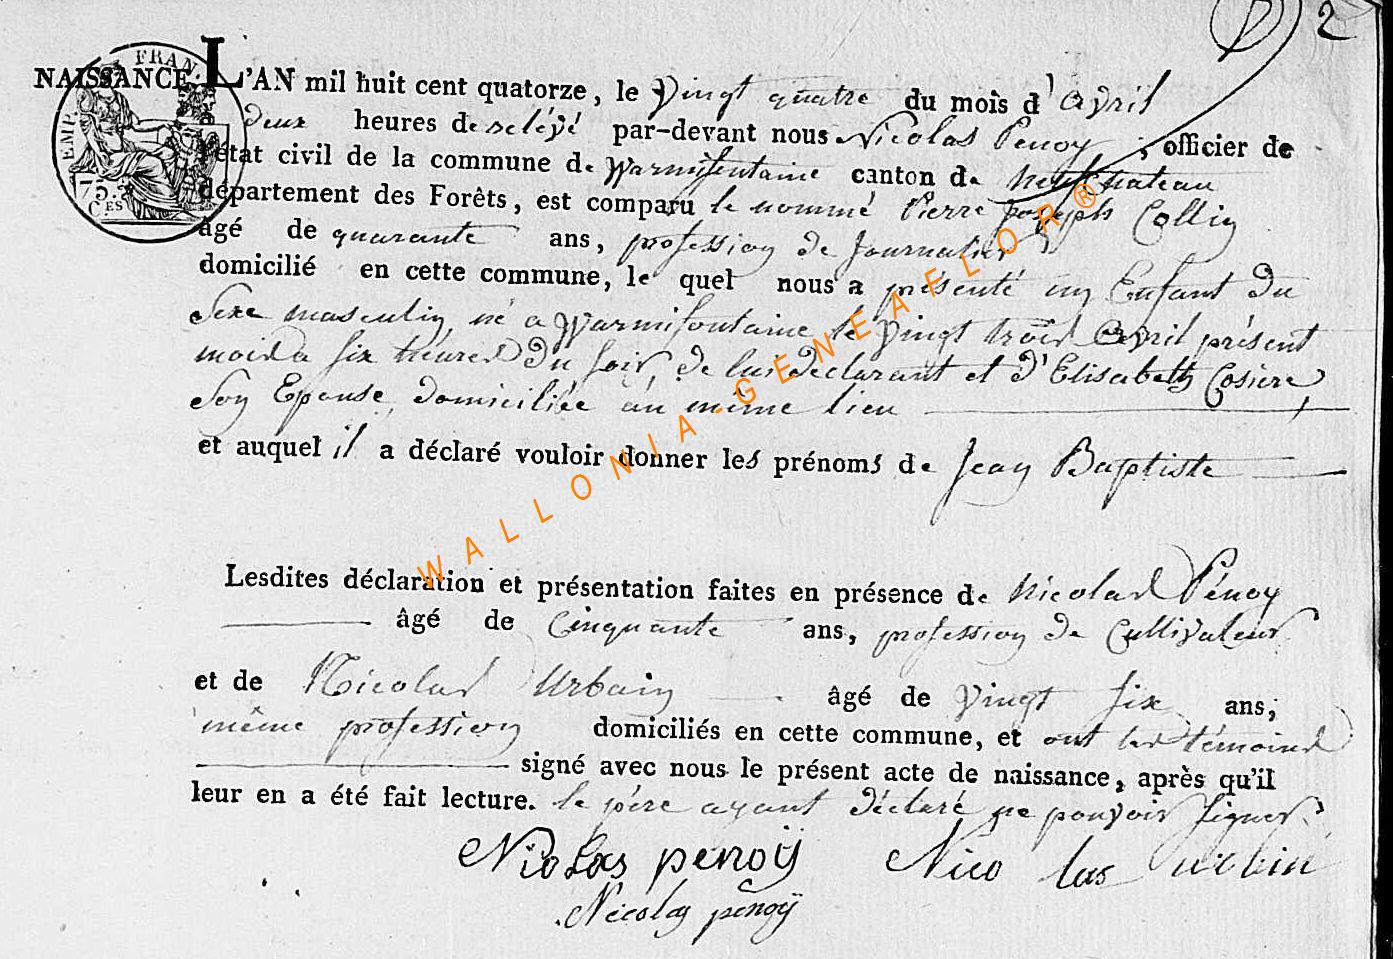 2
NAISSANCE. L'AN mil huit cent quatorze, le Vingt quatre du mois d'avril
EMP. FRAN
deux heures de relévé par-devant nous Nicolas Penoy, officier de
l'état civil de la commune de Warmifontaine canton de neufchateau
75 CES
département des Forêts, est comparu le nommé Pierre Joseph Collin
âgé de quarante ans, profession de Journalier
domicilié en cette commune, le quel nous a présenté un Enfant du
Sexe masculin, né a Warmifontaine le Vingt trois avril présent
mois a six heures du soir, de lui déclarant et d'Elisabeth Cosiere
Son Epouse, domiciliée au même lieu
et auquel il a déclaré vouloir donner les prénoms de Jean Baptiste
WALLONIA-GENEAFLOR®
Lesdites déclaration et présentation faites en présence de Nicolas Pénoy
âgé de Cinquante ans, profession de Cultivateur
et de Nicolas Urbain âgé de Vingt six ans,
même profession domiciliés en cette commune, et ont les témoins
signé avec nous le présent acte de naissance, après qu'il
leur en a été fait lecture. le père ayant déclaré ne pouvoir signer.
Nicolas penoÿ Nico las urbin
Nicolas penoÿ